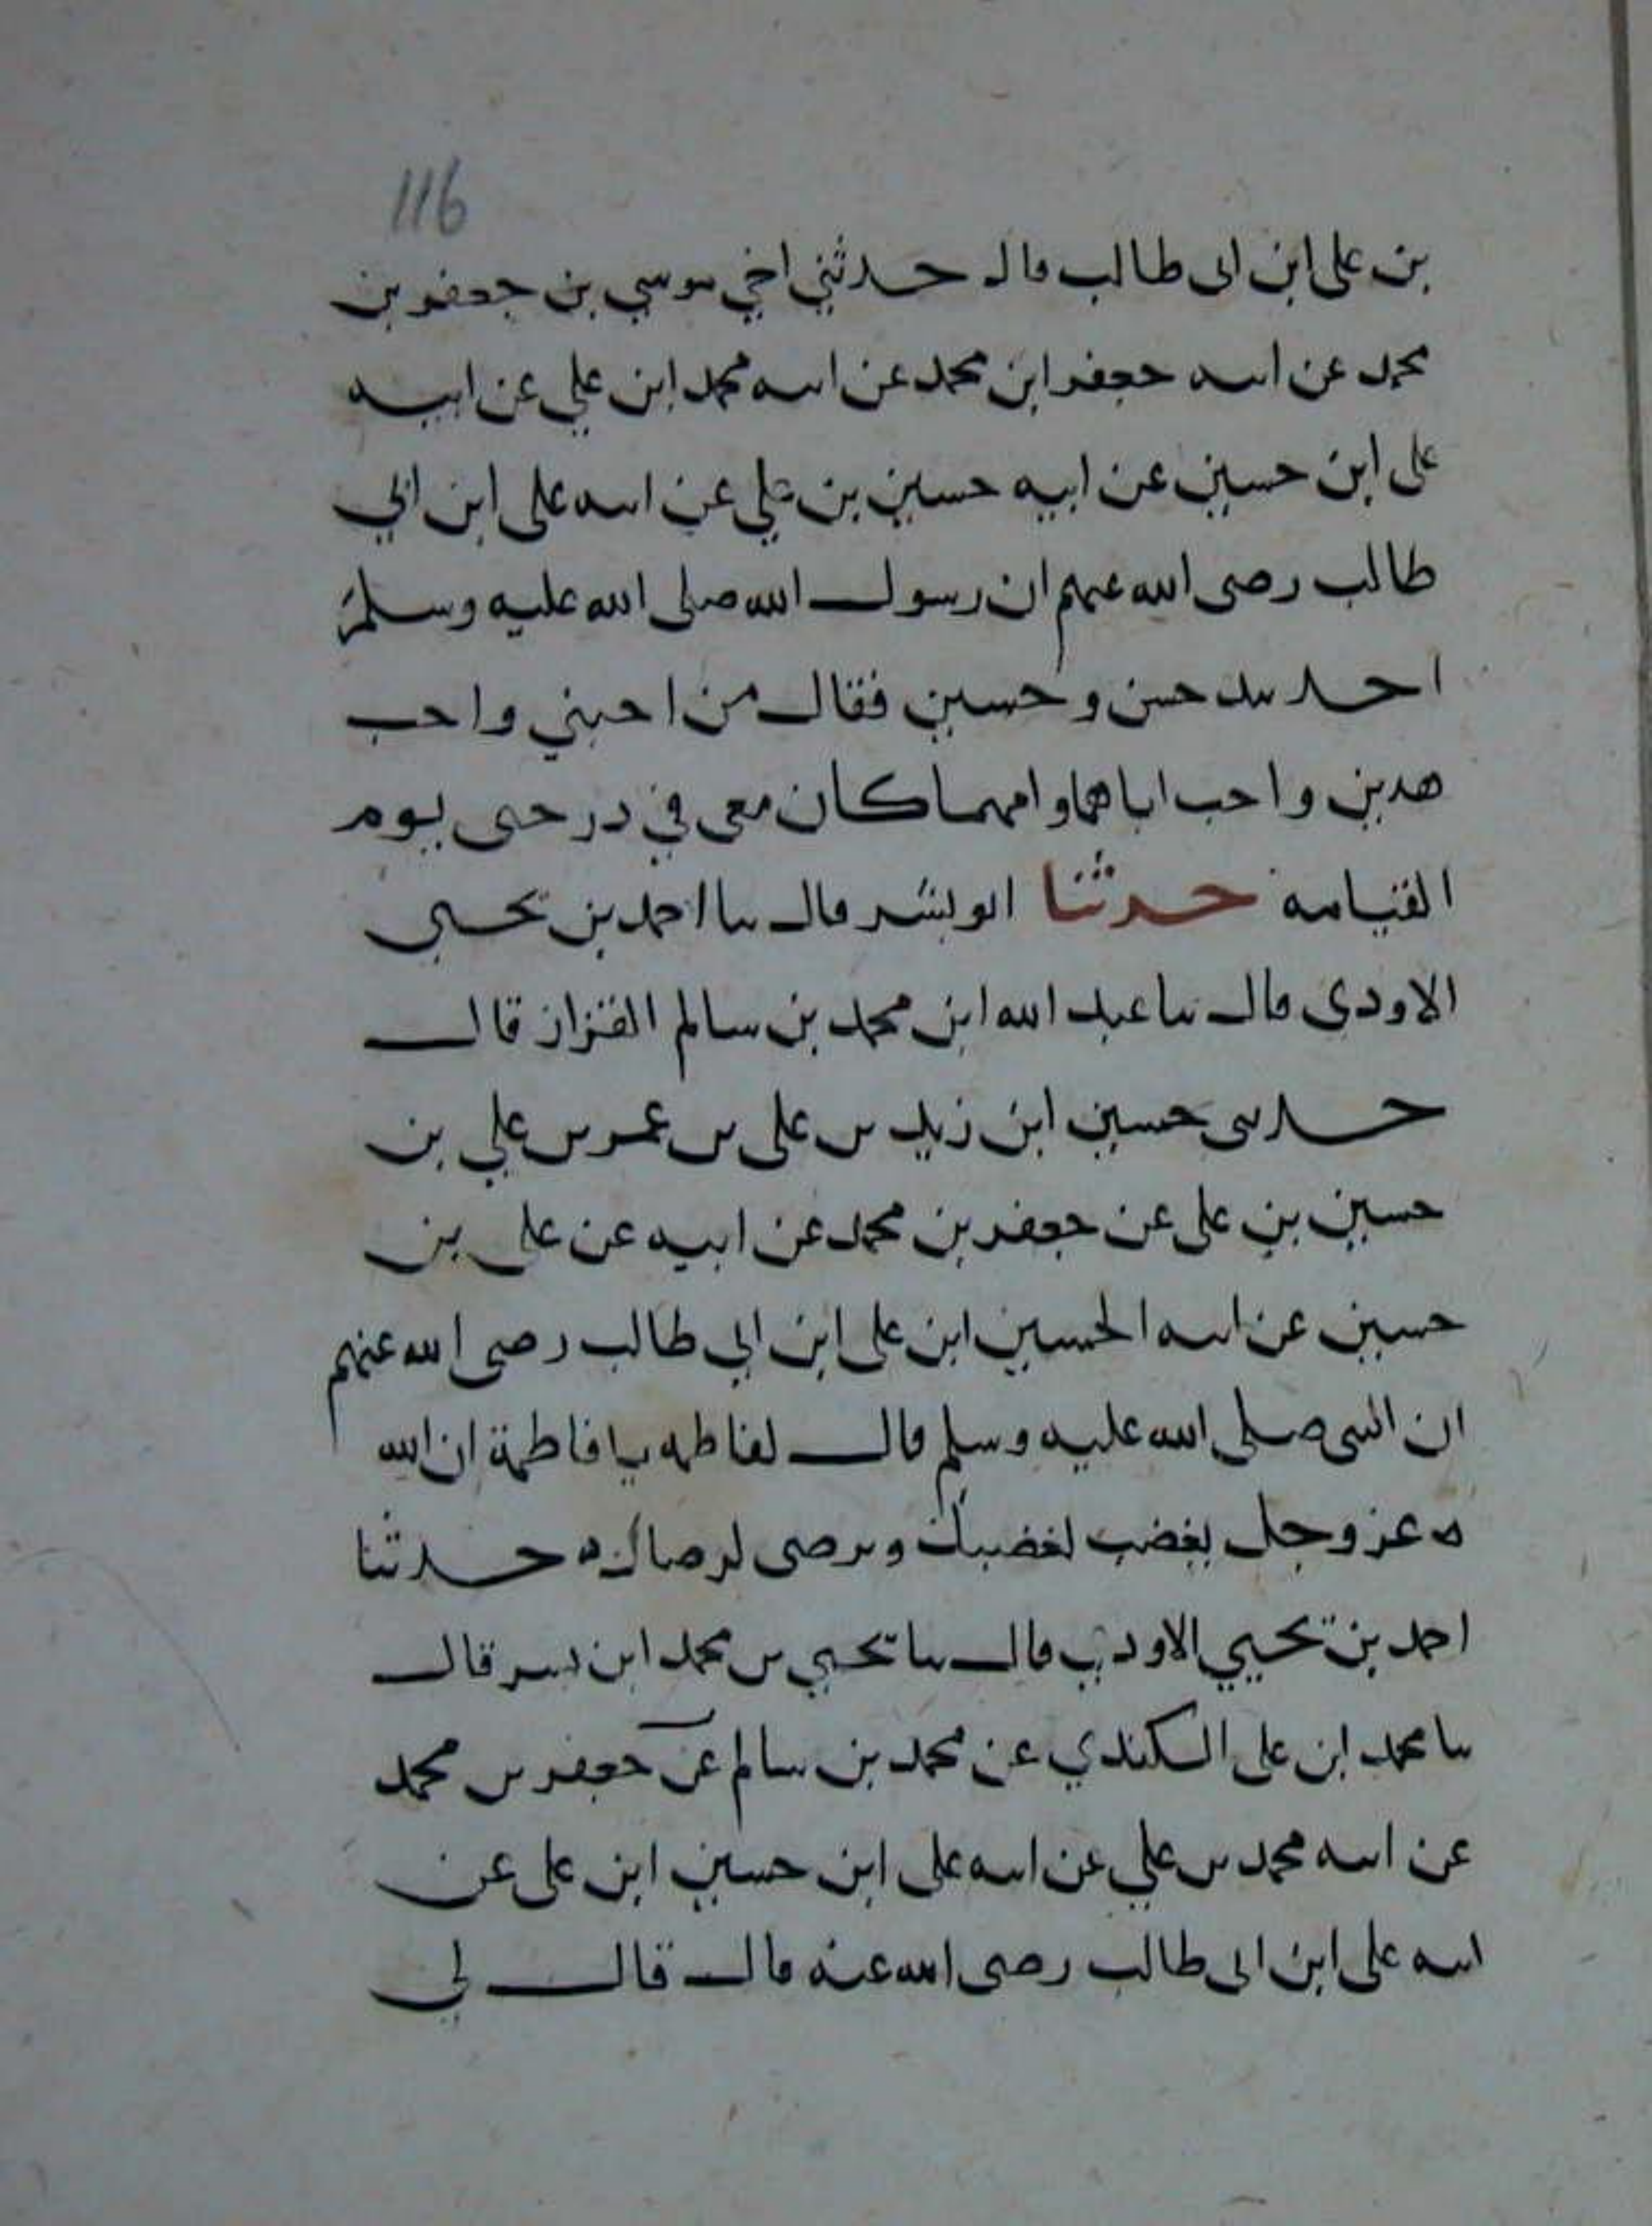 116
بن على ابن ابى طالب قال حدثني اخي موسي بن جعفر بن
محمد عن ابيه جعفر ابن محمد عن ابيه محمد ابن علي عن ابيه
على ابن حسين عن ابيه حسين بن علي عن ابيه على ابن ابي
طالب رضى الله عنهم ان رسول الله صلى الله عليه وسلم
اخذ بيد حسن وحسين فقال من احبني واحب
هذين واحب اباهما وامهما كان معى في درجتى يوم
القيامه حدثنا ابو بشر قال سا احمد بن يحيى
الاودى قال سا عبد الله ابن محمد بن سالم القزاز قال
حدثنى حسين ابن زيد بن على بن عمر بن علي بن
حسين بن على عن جعفر بن محمد عن ابيه عن على بن
حسين عن ابيه الحسين ابن على ابن ابي طالب رضى الله عنهم
ان النبى صلى الله عليه وسلم قال لفاطمه يا فاطمة ان الله
ه عز وجل يغضب لغضبك ويرضى لرضاك ه حدثنا
احمد بن يحيي الاودي قال سا يحيي بن محمد ابن بشر قال
سا محمد ابن على الكندي عن محمد بن سالم عن جعفر بن محمد
عن ابيه محمد بن علي عن ابيه على ابن حسين ابن على عن
ابيه على ابن ابى طالب رضى الله عنه قال قال لي